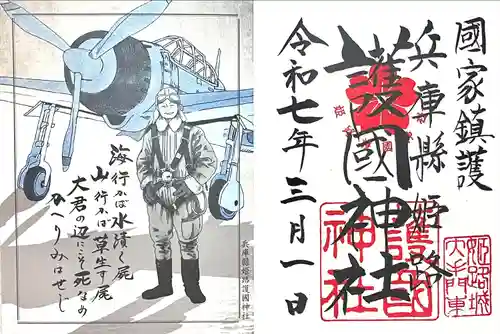 國家鎮護
兵庫縣姫路
護國神社
令和七年三月一日
護國
神社
姫路城
大手門東
海行かば水漬く屍
山行かば草生す屍
大君の辺にこそ死なめ
かへりみはせじ
兵庫縣姫路護國神社